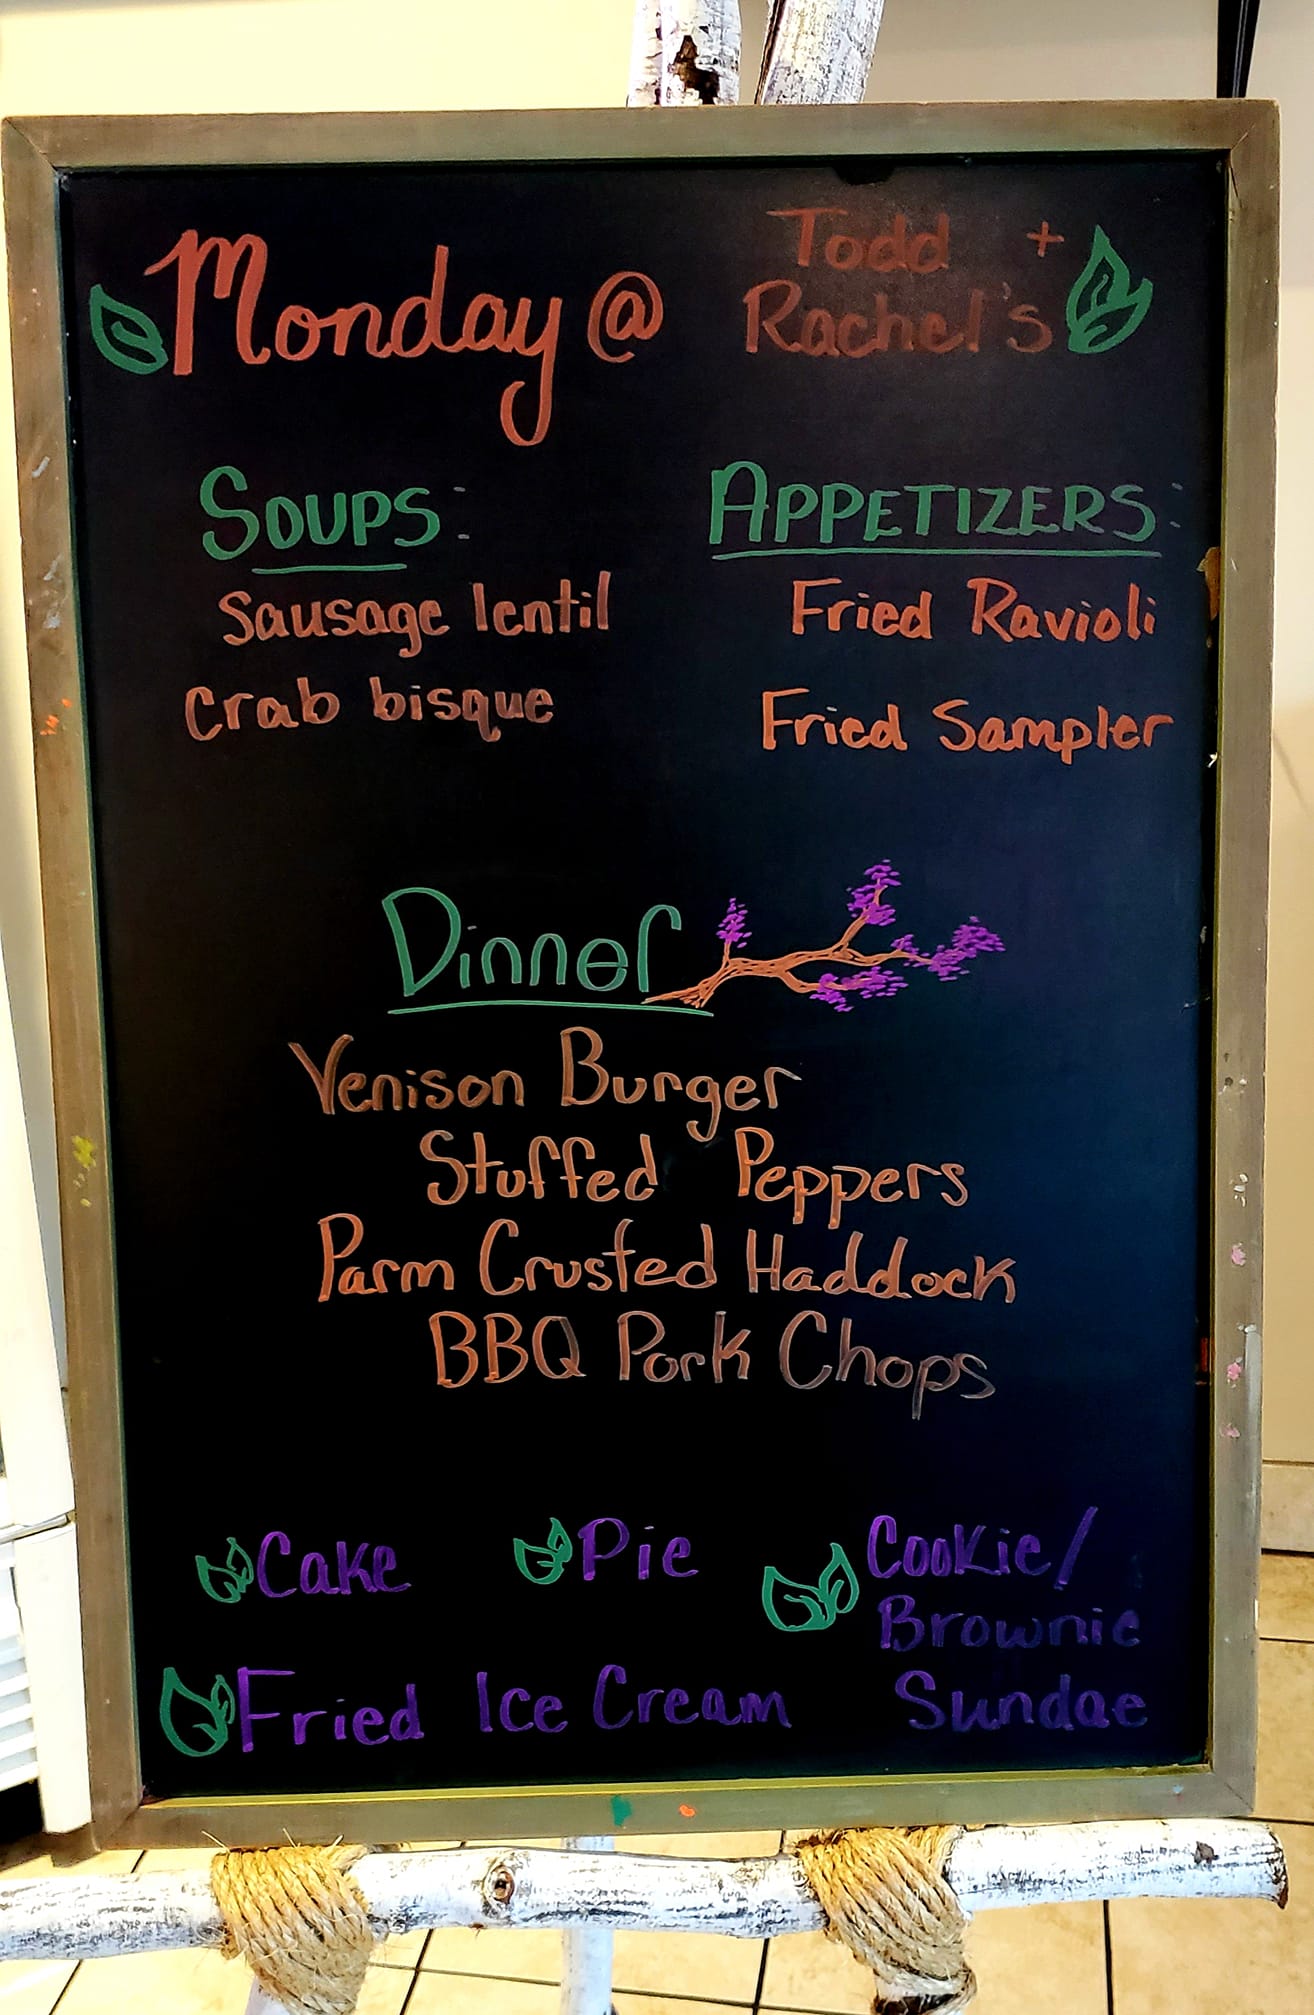 Monday @ Todd +
Rachel's
SOUPS:
Sausage lentil
Crab bisque
APPETIZERS:
Fried Ravioli
Fried Sampler
Dinner
Venison Burger
Stuffed Peppers
Parm Crusted Haddock
BBQ Pork Chops
Cake
Pie
Cookie/
Brownie
Sundae
Fried Ice Cream